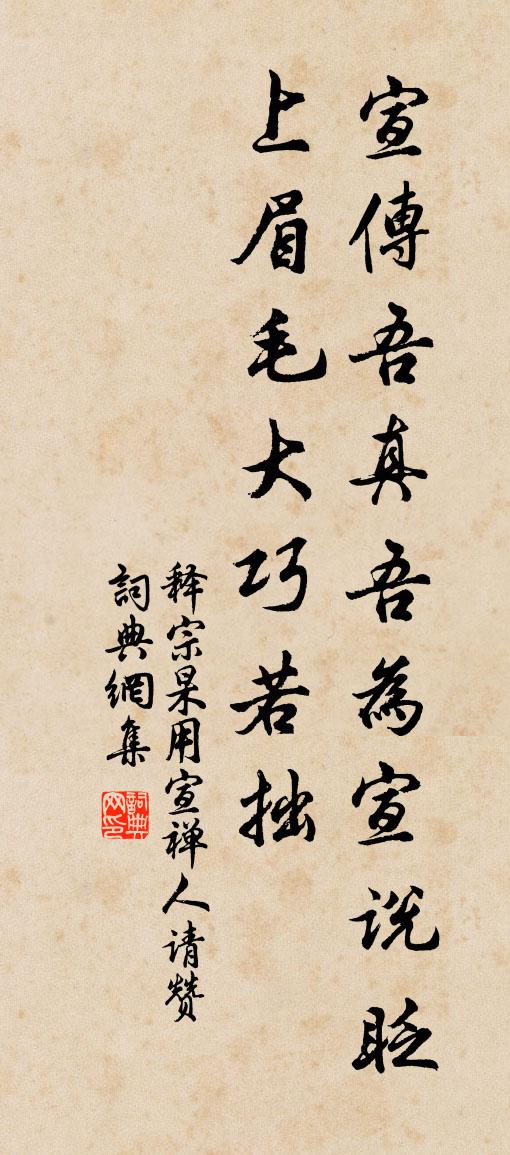 宣傳吾真吾為宣説眨
上眉毛大巧若拙
释宗杲用宣禅人请赞
詞典網集
詞典网印